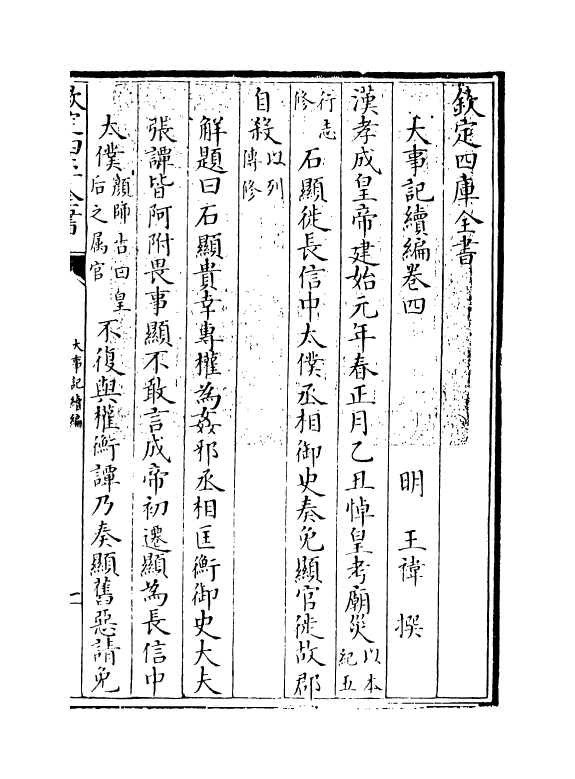 欽定四庫全書
大事記續編卷四
明 王禕 撰
漢孝成皇帝建始元年春正月乙丑悼皇考廟災以本
紀五
行志
修
石顯徙長信中太僕丞相御史奏免顯官徙故郡
自殺以列
傳修
解題曰石顯貴幸專權為姦邪丞相匡衡御史大夫
張譚皆阿附畏事顯不敢言成帝初遷顯為長信中
太僕顔師古曰皇
后之属官
不復與權衡譚乃奏顯舊惡請免
大事記續編
一